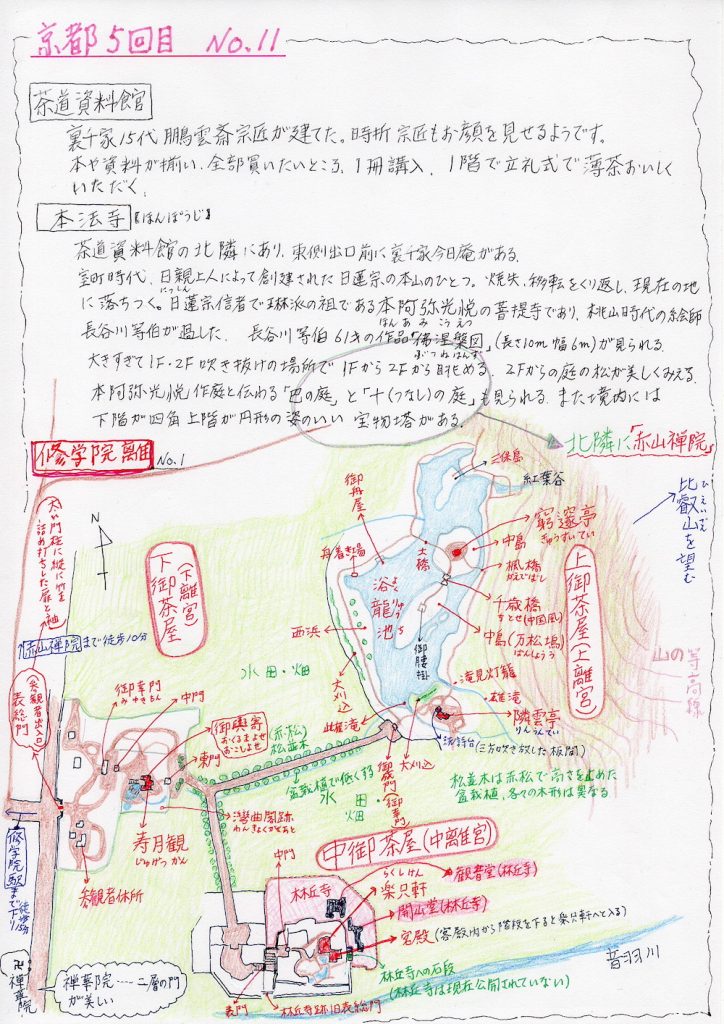 京都5回目 NO.11
茶道資料館
裏千家15代鵬雲斎宗匠が建てた。時折宗匠もお顔を見せるようです。
本や資料が揃い、全部買いたいところ、1冊講入。1階で立礼式で薄茶おいしく
いただく。
本法寺『ほんぽうじ』
茶道資料館の北隣にあり、東側出口前に裏千家今日庵がある。
室町時代、日親上人によって創建された日蓮宗の本山のひとつ。焼失、移転をくり返し、現在の地
にっしん
に落ちつく。日蓮宗信者で琳派の祖である本阿弥光悦の菩提寺であり、桃山時代の絵師
ほんあみこうえつ
長谷川等伯が過した。長谷川等伯61才の作品「佛涅槃図」(長さ10m 幅6m)が見られる
ぶつねはんず
大きすぎて1F・2F吹き抜けの場所で1Fから2Fから眺める。2Fからの庭の松が美しくみえる。
本阿弥光悦作庭と伝わる「巴の庭」と「十(つなし)の庭」も見られる。また境内には
下階が四角 上階が円形の姿のいい宝物塔がある。
北隣に「赤山禅院」
修学院離宮 NO.1
比叡山を望む
ひえいざん
N
下御茶屋(下離宮)
上御茶屋(上離宮)
三保島
紅葉谷
御舟屋
窮邃亭
きゅうすいてい
中島
土橋
楓橋
かえでばし
舟着き場
浴龍池
よくりゅうち
千歳橋
ちとせ(中国風)
中島(万松塢)
ばんしょうう
西浜
御腰掛
山の等高線
赤山禅院まで徒歩10分
水田・畑
大刈込
滝見灯籠
雄滝
雌滝
隣雲亭
りんうんてい
洗詩台(三方吹き放した板間)
表総門
(参観者出入口)
御幸門
みゆきもん
中門
御輿寄
おくるまよせ
おこしよせ
東門
(赤松)松並木
大刈込
御成門
御幸門
盆栽植で低く移
水田・畑
松並木は赤松で高さを止めた
盆栽植、各々の木形は異なる
寿月観
じゅげつかん
彎曲閣跡
わんきょくかくあと
中御茶屋(中離宮)
参観者休所
修学院駅まで下り徒歩15分
中門
林丘寺
らくしけん
楽只軒
観音堂(林丘寺)
開山堂(林丘寺)
客殿(客殿内から階段を下ると楽只軒へと入る)
音羽川
林丘寺への石段
(林丘寺は現在公開されていない)
卍禅華院
禅華院……二層の門
が美しい
表門
林丘寺跡旧表総門